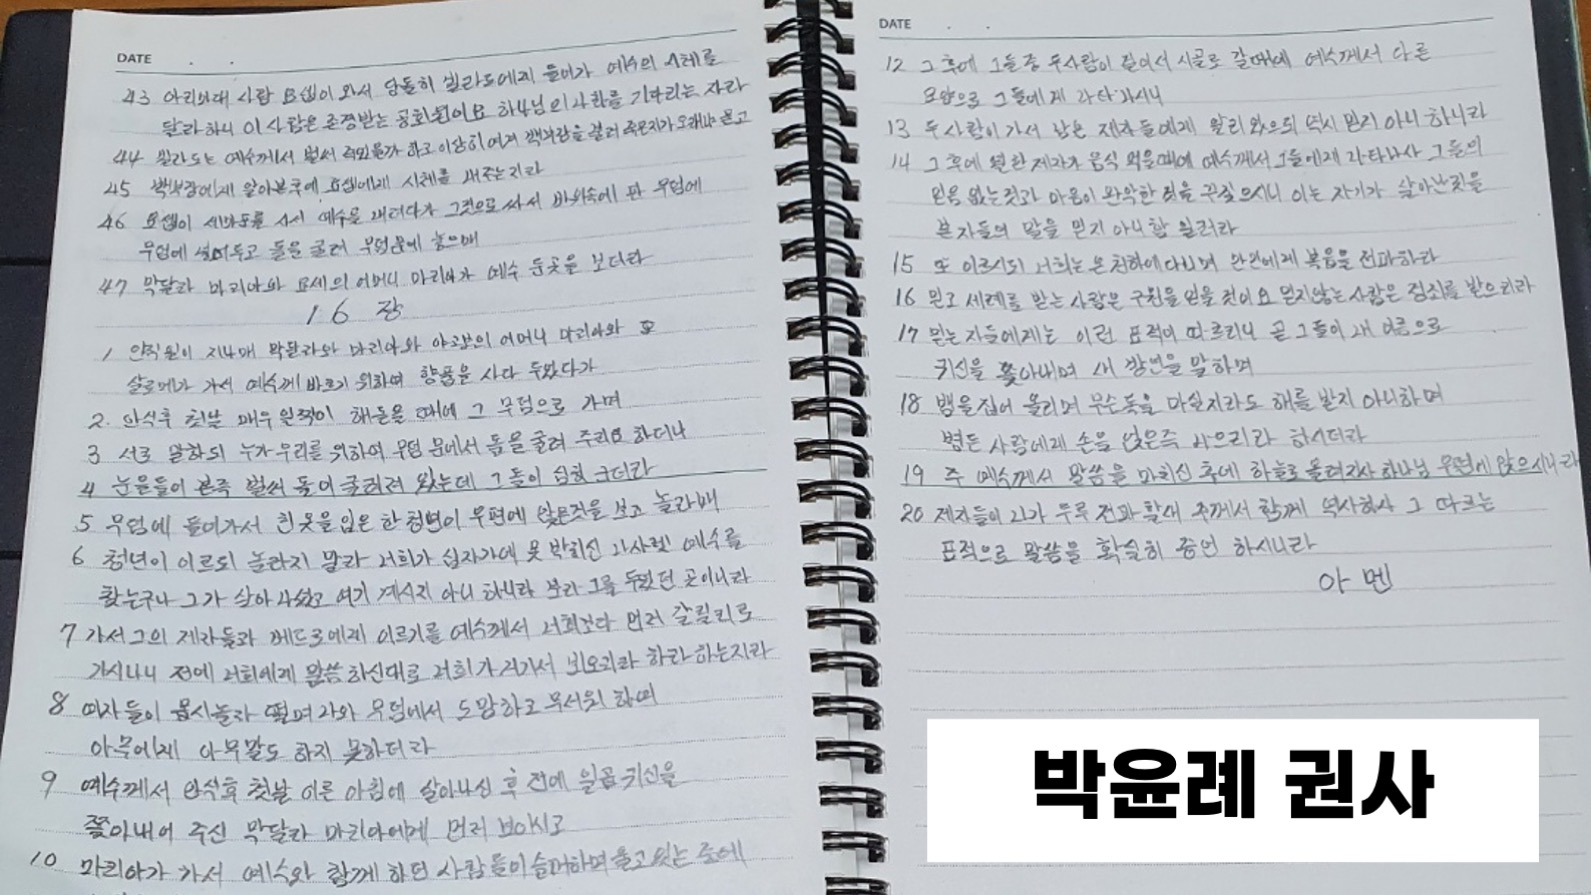 DATE . .
43 아리마대 사람 요셉이 와서 당돌히 빌라도에게 들어가 예수의 시체를
달라하니 이 사람은 존경받는 공회원이요 하나님의 나라를 기다리는 자라
44 빌라도는 예수께서 벌써 죽었을까 하고 이상히 여겨 백부장을 불러 죽은지가 오래냐 묻고
45 백부장에게 알아본 후에 요셉에게 시체를 내주는지라
46 요셉이 세마포를 사서 예수를 내려다가 그것으로 싸서 바위속에 판 무덤에
무덤에 넣어두고 돌을 굴려 무덤문에 놓으매
47 막달라 마리아와 요세의 어머니 마리아가 예수 둔곳을 보더라
16 장
1 안식일이 지나매 막달라와 마리아와 야고보의 어머니 마리아와 또
살로메가 가서 예수께 바르기 위하여 향품을 사다 두었다가
2. 안식후 첫날 매우 일찍이 해돋을 때에 그 무덤으로 가며
3 서로 말하되 누가 우리를 위하여 무덤 문에서 돌을 굴려 주리요 하더니
4 눈을들어 본즉 벌써 돌이 굴려져 있는데 그 돌이 심히 크더라
5 무덤에 들어가서 흰 옷을 입은 한 청년이 우편에 앉은것을 보고 놀라매
6 청년이 이르되 놀라지 말라 너희가 십자가에 못 박히신 나사렛 예수를
찾는구나 그가 살아 나셨고 여기 계시지 아니 하니라 보라 그를 두었던 곳이니라
7 가서 그의 제자들과 베드로에게 이르기를 예수께서 너희보다 먼저 갈릴리로
가시나니 전에 너희에게 말씀 하신대로 너희가 거기서 뵈오리라 하라 하는지라
8 여자들이 몹시놀라 떨며 나와 무덤에서 도망하고 무서워 하며
아무에게 아무말도 하지 못하더라
9 예수께서 안식후 첫날 이른 아침에 살아나신 후 전에 일곱 귀신을
쫓아내어 주신 막달라 마리아에게 먼저 보이시고
10 마리아가 가서 예수와 함께 하던 사람들이 슬퍼하며 울고 있는 중에
DATE . .
12 그 후에 그들 중 두사람이 걸어서 시골로 갈때에 예수께서 다른
모양으로 그들에게 나타나시니
13 두 사람이 가서 남은 제자들에게 알리었으되 역시 믿지 아니 하니라
14 그 후에 열한 제자가 음식 먹을때에 예수께서 그들에게 나타나사 그들의
믿음 없는것과 마음이 완악한 것을 꾸짖으시니 이는 자기가 살아난것을
본 자들의 말을 믿지 아니함 일러라
15 또 이르시되 너희는 온 천하에 다니며 만민에게 복음을 전파하라
16 믿고 세례를 받는 사람은 구원을 얻을 것이요 믿지않는 사람은 정죄를 받으리라
17 믿는 자들에게는 이런 표적이 따르리니 곧 그들이 내 이름으로
귀신을 쫓아내며 새 방언을 말하며
18 뱀을 집어 올리며 무슨독을 마실지라도 해를 받지 아니하며
병든 사람에게 손을 얹은즉 나으리라 하시더라
19 주 예수께서 말씀을 마치신 후에 하늘로 올려지사 하나님 우편에 앉으시니라
20 제자들이 나가 두루 전파 할새 주께서 함께 역사하사 그 따르는
표적으로 말씀을 확실히 증언 하시니라
아 멘
박윤례 권사